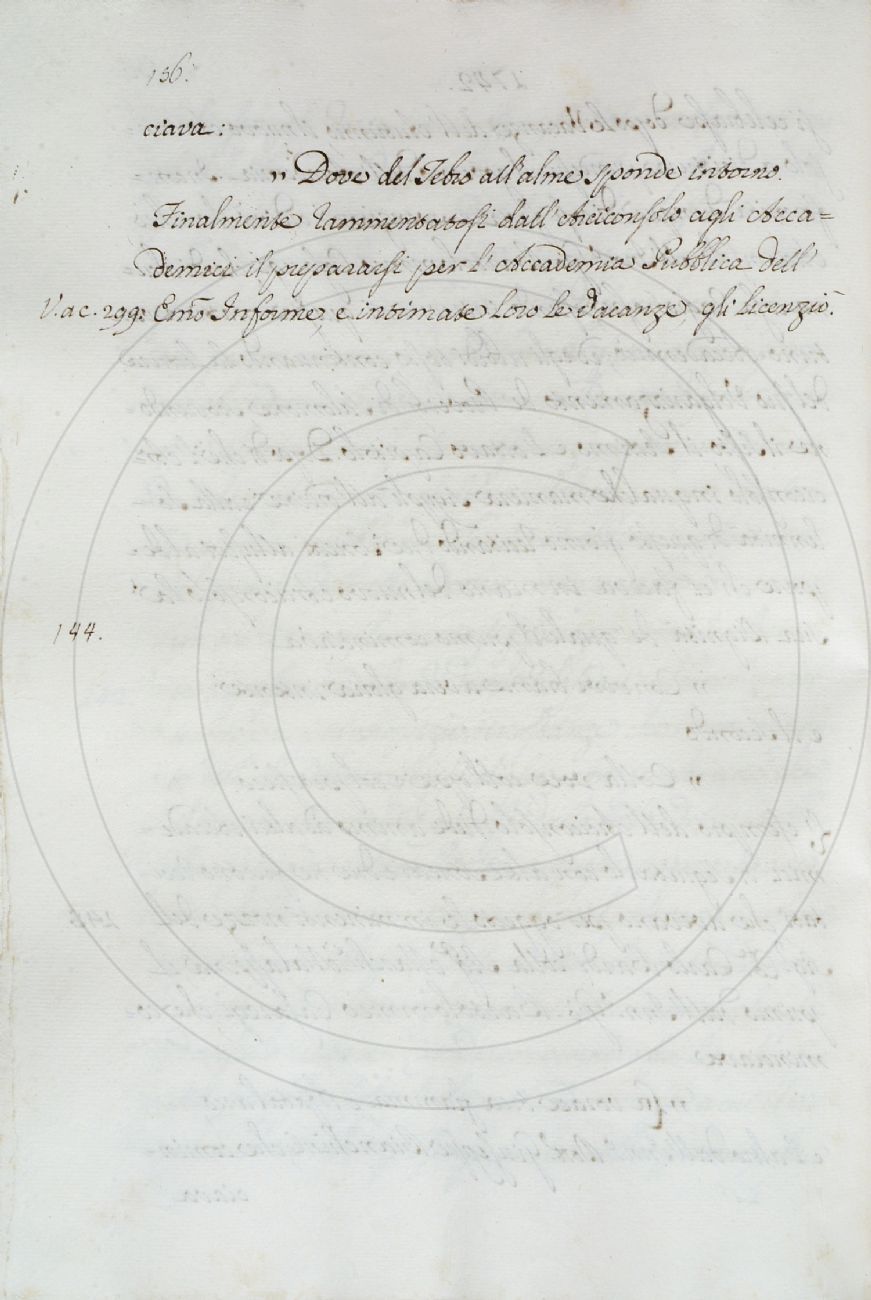 136.
ciava:
" Dove del Tebro all'alme sponde intorno.
Finalmente rammentatosi dall'Arciconsolo agli Acca=
demici il prepararsi per l'Accademia Pubblica dell'
V. a c. 299: Emo Infarine, e intimate loro le vacanze, gli licenziò.
144.